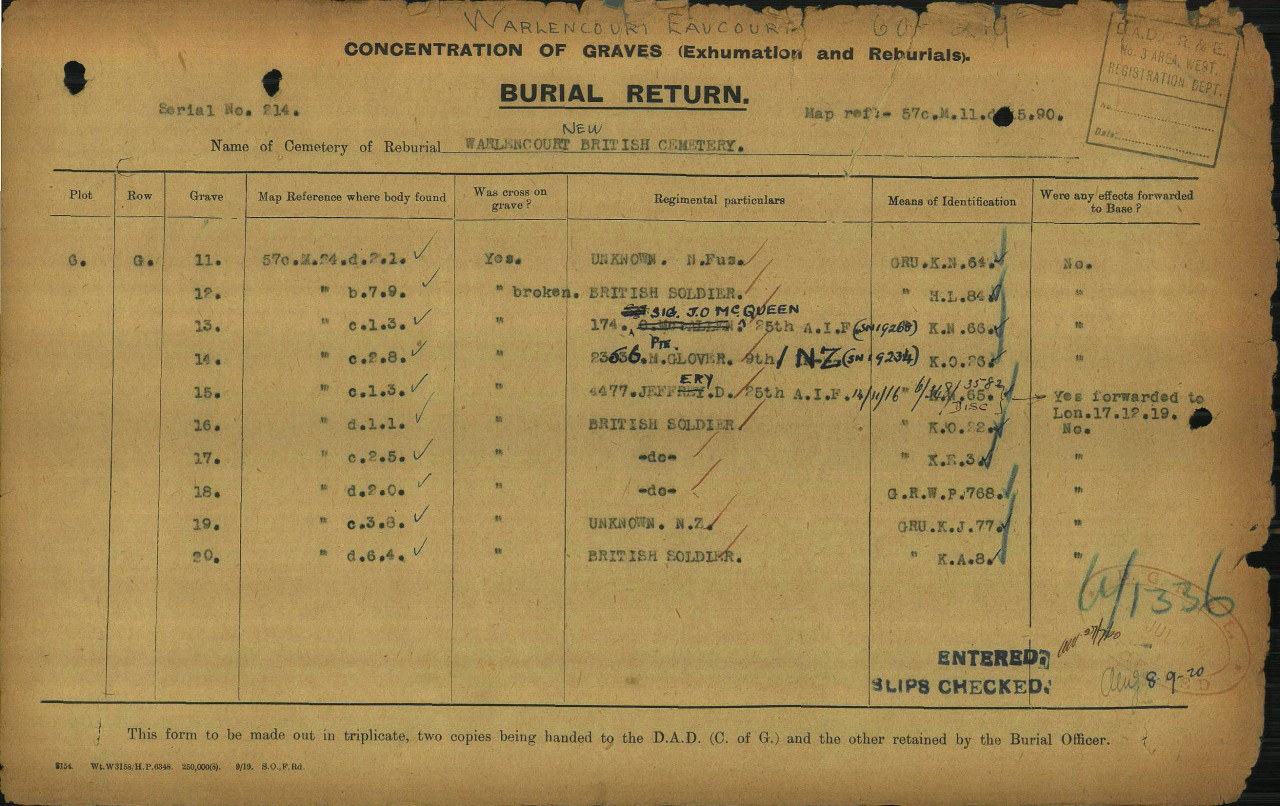 WARLENCOURT EAUCOURT
CONCENTRATION OF GRAVES (Exhumation and Reburials).
BURIAL RETURN.
No. 3 AREA, WEST.
REGISTRATION DEPT.
No.
Date:
Serial No. 214.
Map ref:- 57c.M.11. 5.90.
NEW
Name of Cemetery of Reburial WARLENCOURT BRITISH CEMETERY.
Plot Row Grave Map Reference where body found Was cross on grave? Regimental particulars Means of Identification Were any effects forwarded to Base?
G. G. 11. 57c.M.24.d.2.1. ✓ Yes. UNKNOWN. N.Fus. GRU.K.N.64. No.
12. " b.7.9. ✓ " broken. BRITISH SOLDIER. " H.L.84. "
SIG. J.O MCQUEEN
13. " c.1.3. ✓ " 174. 25th A.I.F (SN19268) K.N.66. "
Pte.
14. " c.2.8. ✓ " M.GLOVER. 9th / NZ (SN 19234) K.O.26. "
ERY
15. " c.1.3. ✓ " 4477.JEFFREY.D. 25th A.I.F. 14/11/16 " 65. DISC Yes forwarded to
Lon.17.12.19.
16. " d.1.1. ✓ " BRITISH SOLDIER. " K.O.22. No.
17. " c.2.5. ✓ " -do- " K.E.3. "
18. " d.2.0. ✓ " -do- G.R.W.P.768. "
19. " c.3.8. ✓ " UNKNOWN. N.Z. GRU.K.J.77. "
20. " d.6.4. ✓ " BRITISH SOLDIER. " K.A.8. "
/1336
JUL
ENTERED
SLIPS CHECKED.
8-9-20
This form to be made out in triplicate, two copies being handed to the D.A.D. (C. of G.) and the other retained by the Burial Officer.
Wt.W3158/H.P.6348. 250,000(8). 9/19. S.O.,F.Rd.